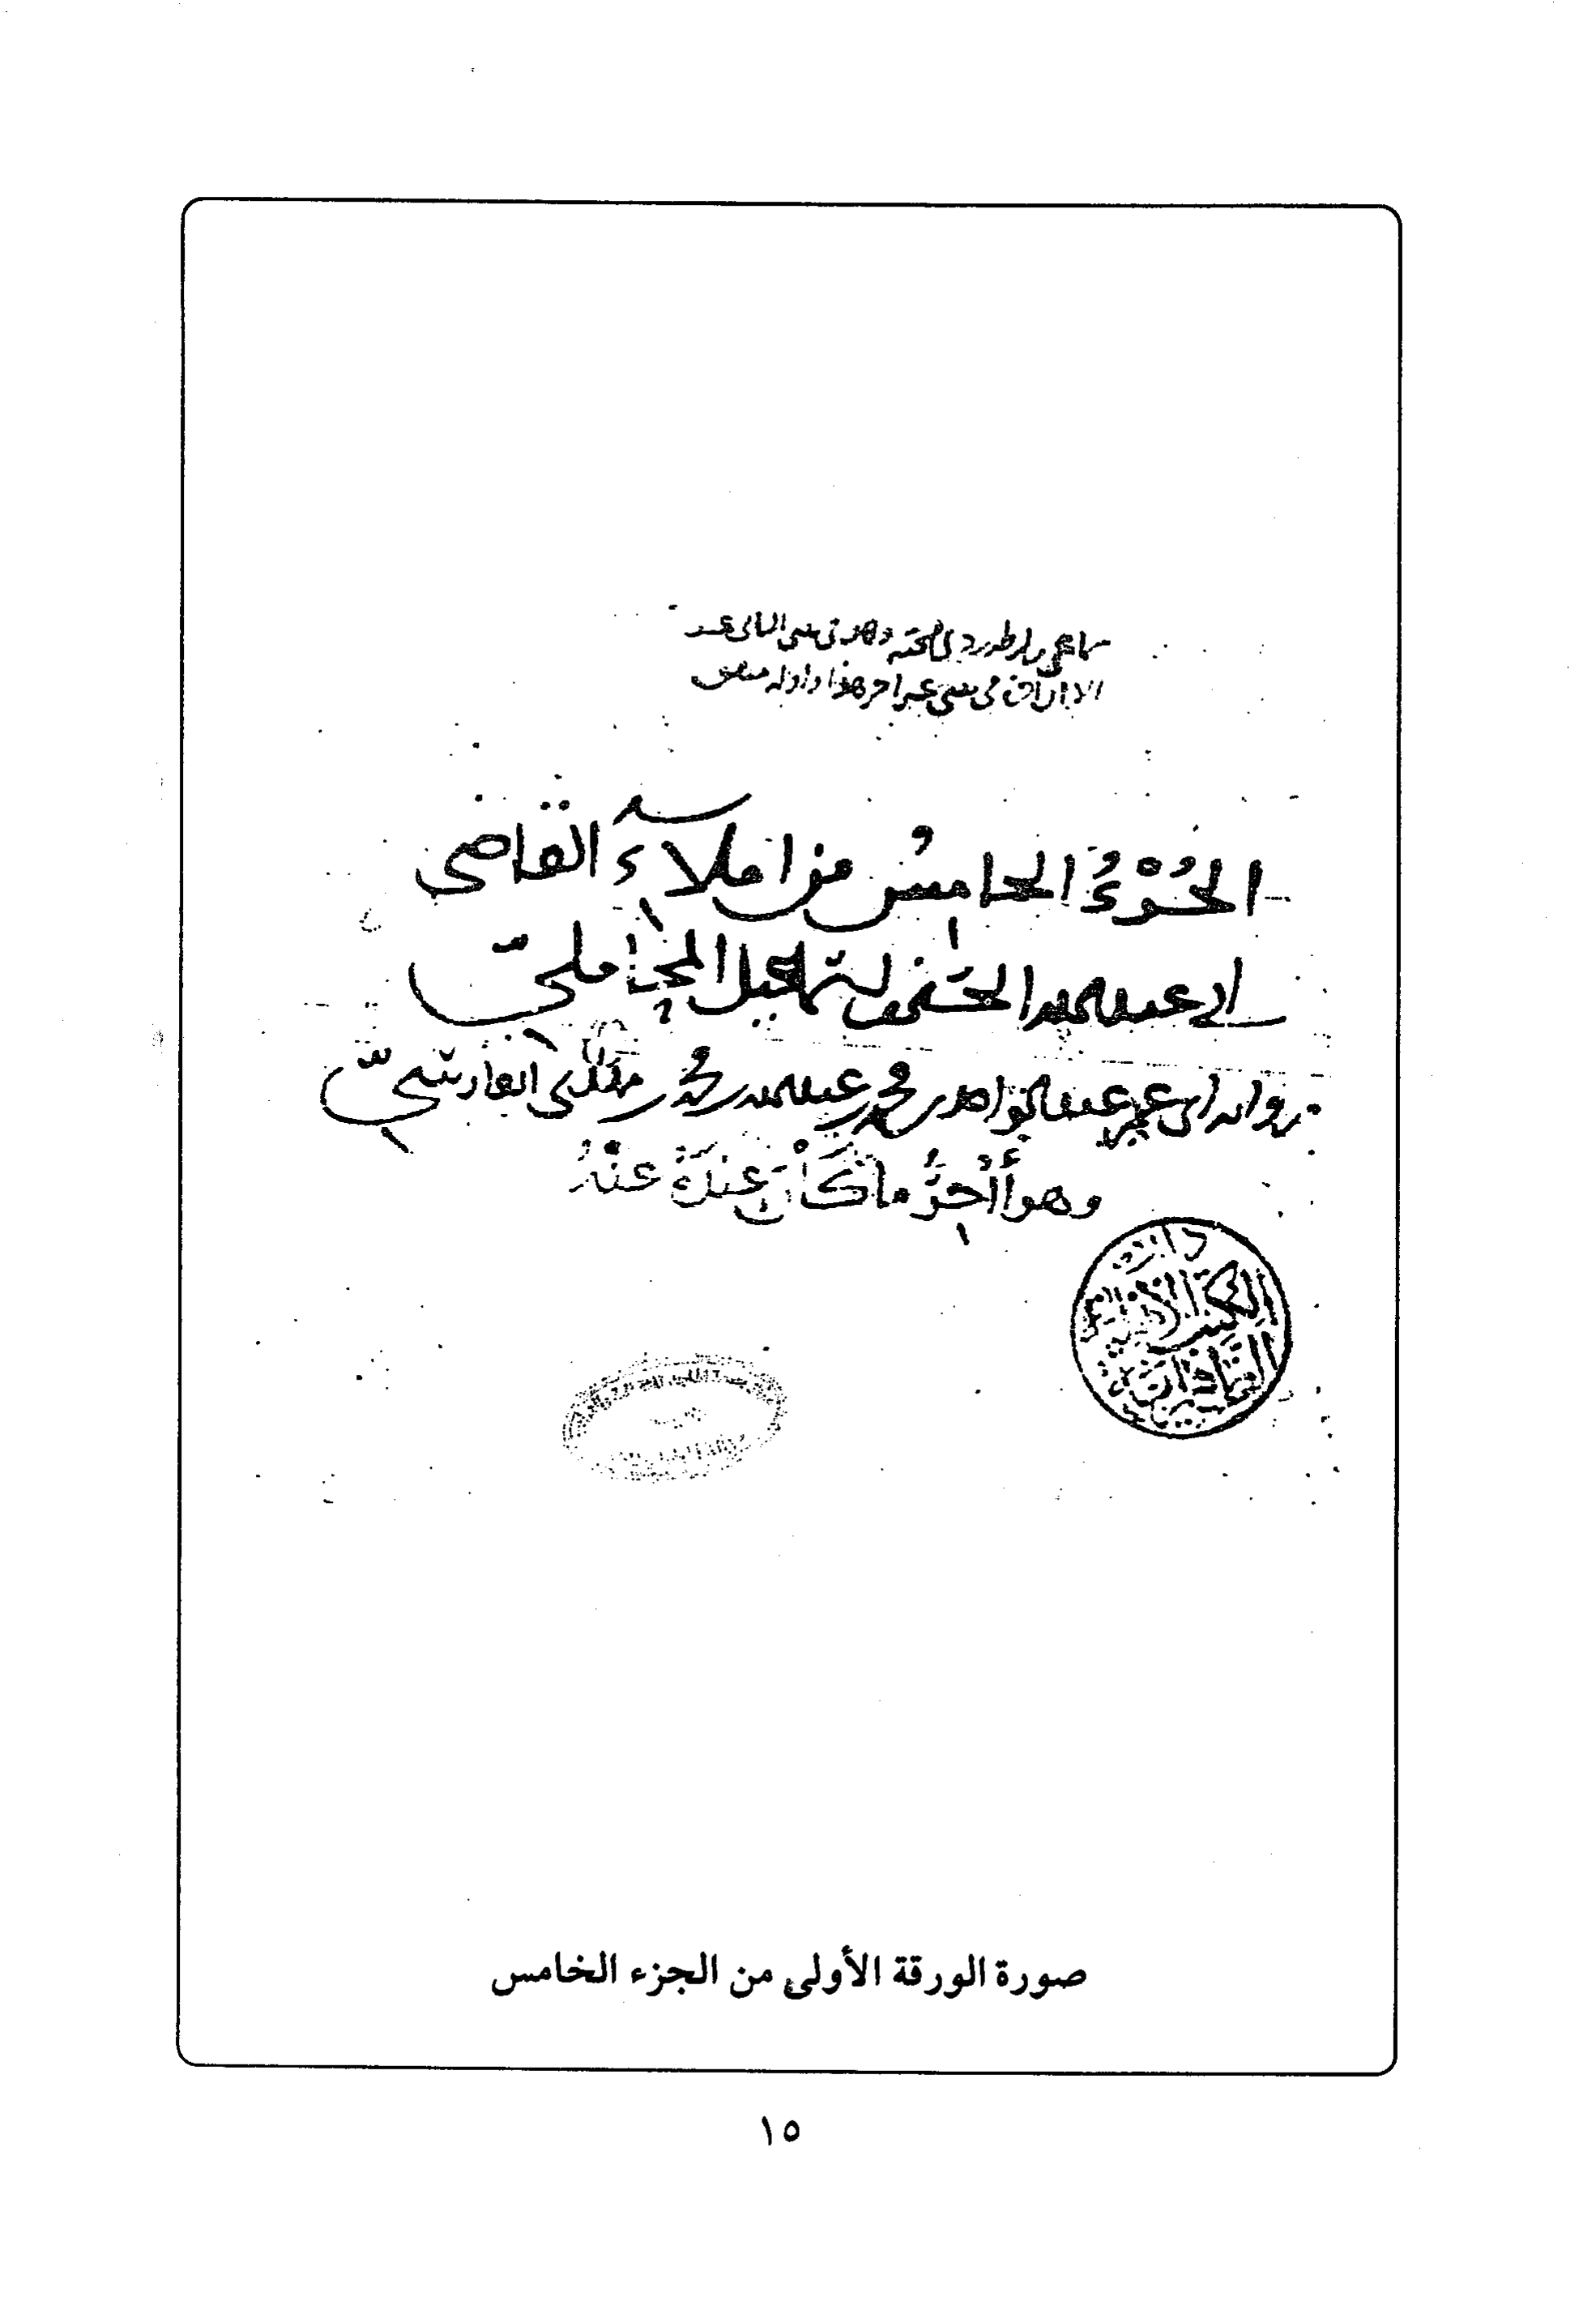 الجُزْءُ الخامسُ من املاء القاضي
ابي عبد الله الحسين بن اسمعيل المحامليّ
رواية ابي عمر عبد الواحد بن محمد بن عبد الله بن محمد بن مهدي الفارسيّ
وهو أاخِرُ ما كَانَ عِندَهُ عنْهُ
دار
الكتب الأهلية
الظاهرية
صورة الورقة الأولى من الجزء الخامس
١٥